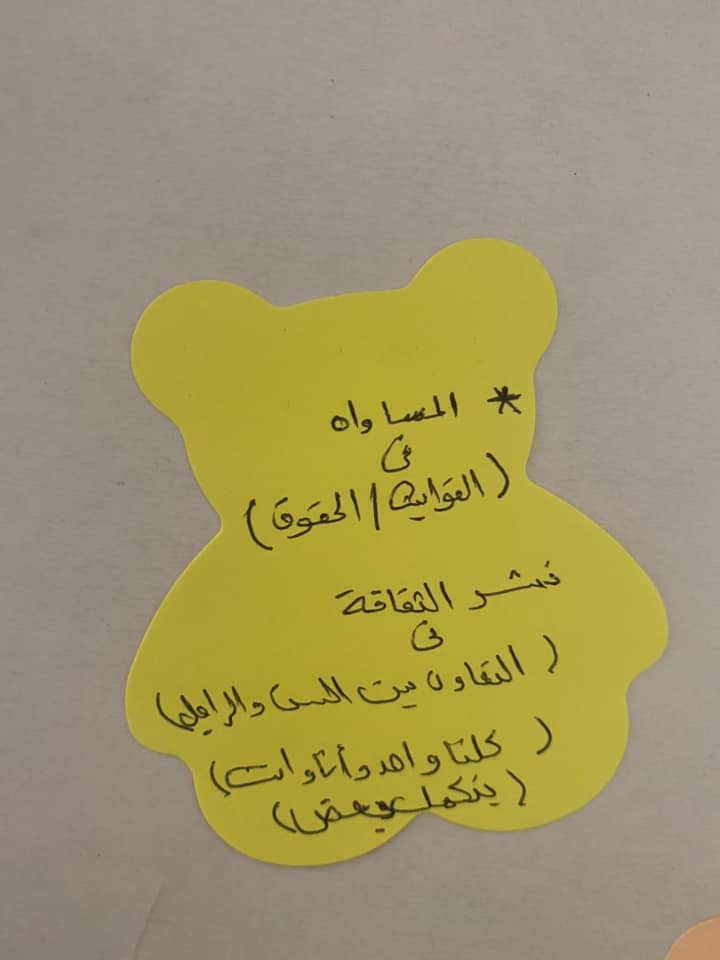 * المساواه
فى
( القوانين / الحقوق )
نشر الثقافة
فى
( التعاون بين الست والراجل )
( كلنا واحد وأنا وانت )
( بنكمل بعض )